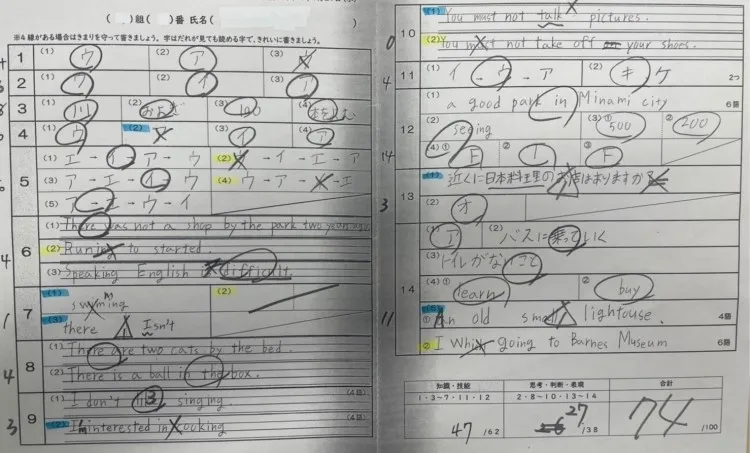 ( )組( )番 氏名( )
※4線がある場合はきまりを守って書きましょう。字はだれが見ても読める字で、きれいに書きましょう。
1 (1) ウ (2) ア (3) ウ
2 (1) ウ (2) イ (3) ア
3 (1) 川 (2) おんぎ (3) 100 (4)
4 (1) ウ (2) (3) イ (4) ア
5 (1) エ → イ → ア → ウ (2) → イ → エ → ア
(3) ア → エ → イ → ウ (4) ウ → ア → → エ
(5) ア → エ → ウ → イ
6 (1) There was not a shop by the park two years ago.
(2) Runing to started.
(3) Speaking English is difficult.
7 (1) swimming (2)
(3) there Isn't
8 (1) There are two cats by the bed.
(2) There is a ball in the box.
9 (1) I don't like singing. (4語)
(2) I'm interested in cooking (4語)
10 (1) You must not talk pictures.
(2) You must not take off your shoes.
11 (1) イ → ウ → ア (2) キ ケ 2つ
12 (1) a good park in Minami city 6語
(2) seeing (3)① 500 ② 200
(4)① F ② T ③ F
13 (1) 近くに日本料理のお店はありますか
(2) オ
14 (1) ア (2) バスに乗っていく
(3) トイレがないこと
(4)① learn ② buy
(5) ① An old small lightouse. 4語
② I going to Barnes Museum 6語
知識・技能 思考・判断・表現 合計
1・3~7・11・12 2・8~10・13~14
47 /62 27 /38 74 /100
4
0
4
14
3
11
4
1
4
3